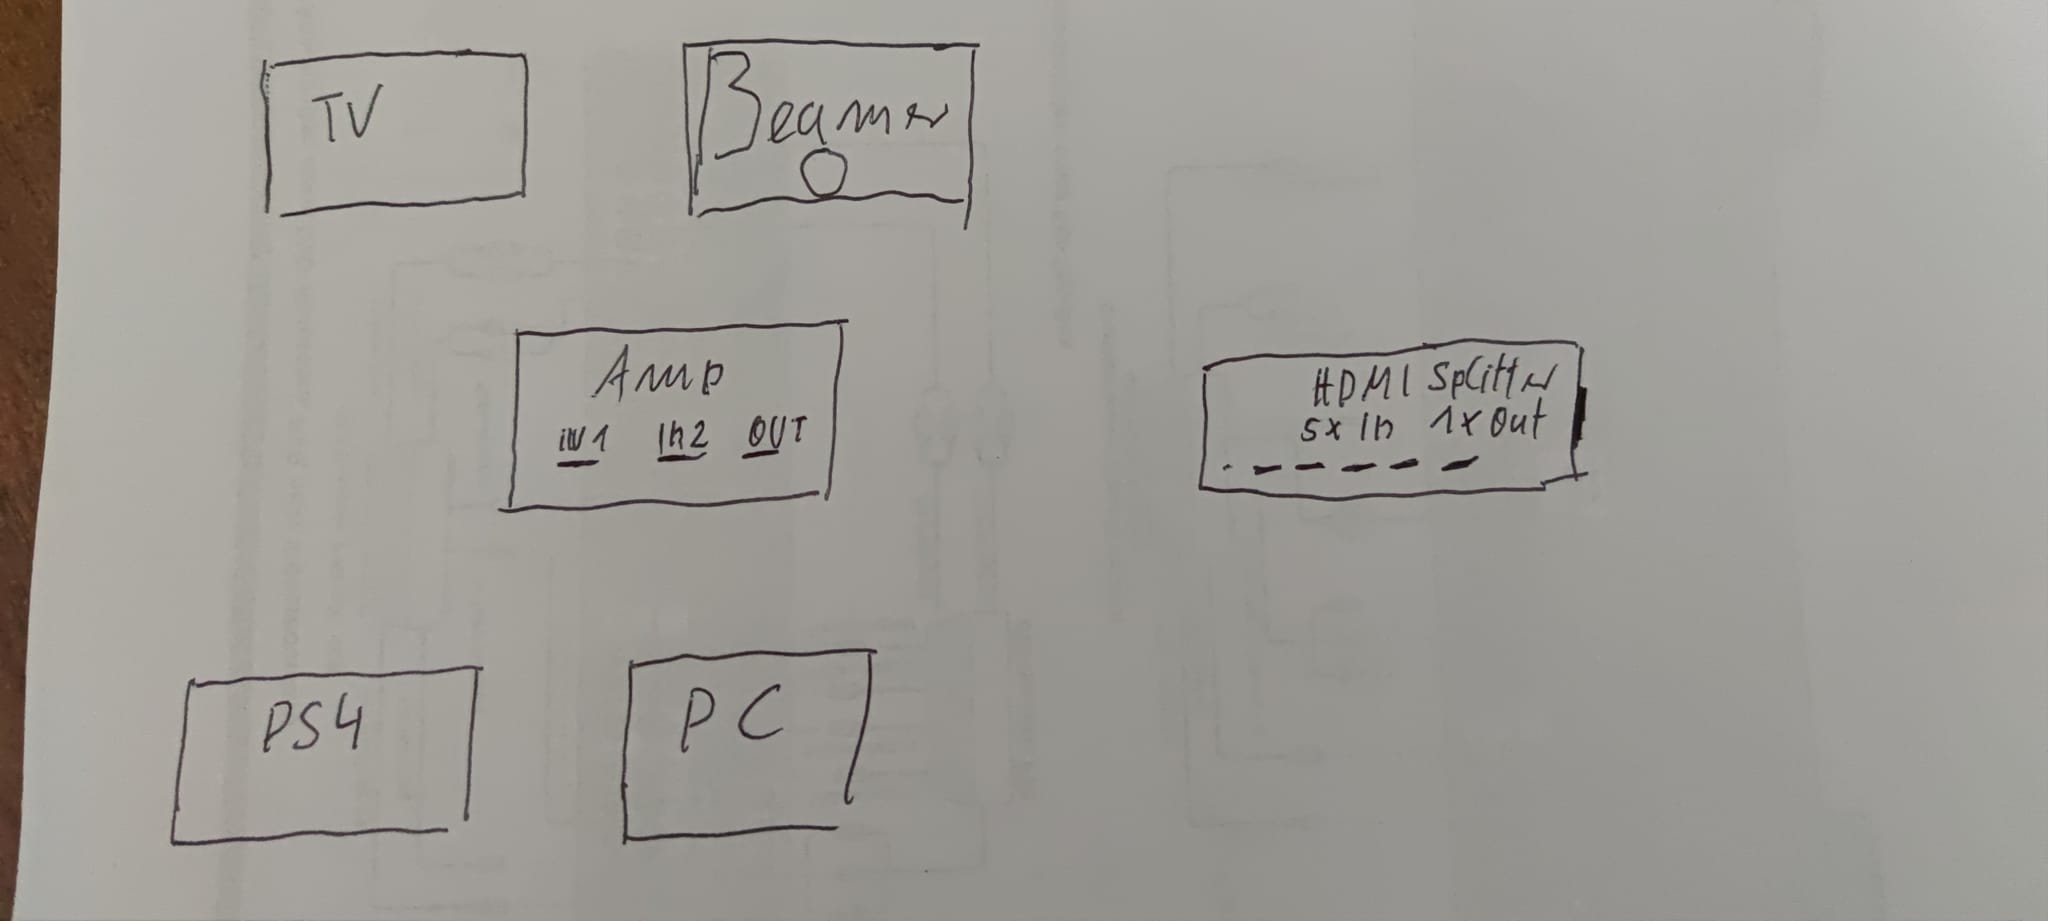 TV
Beamer
Amp
IN1 In2 OUT
HDMI Splitter
5x In 1x Out
PS4
PC